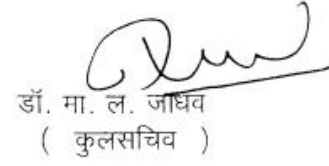 डॉ. मा. ल. जाधव
( कुलसचिव )